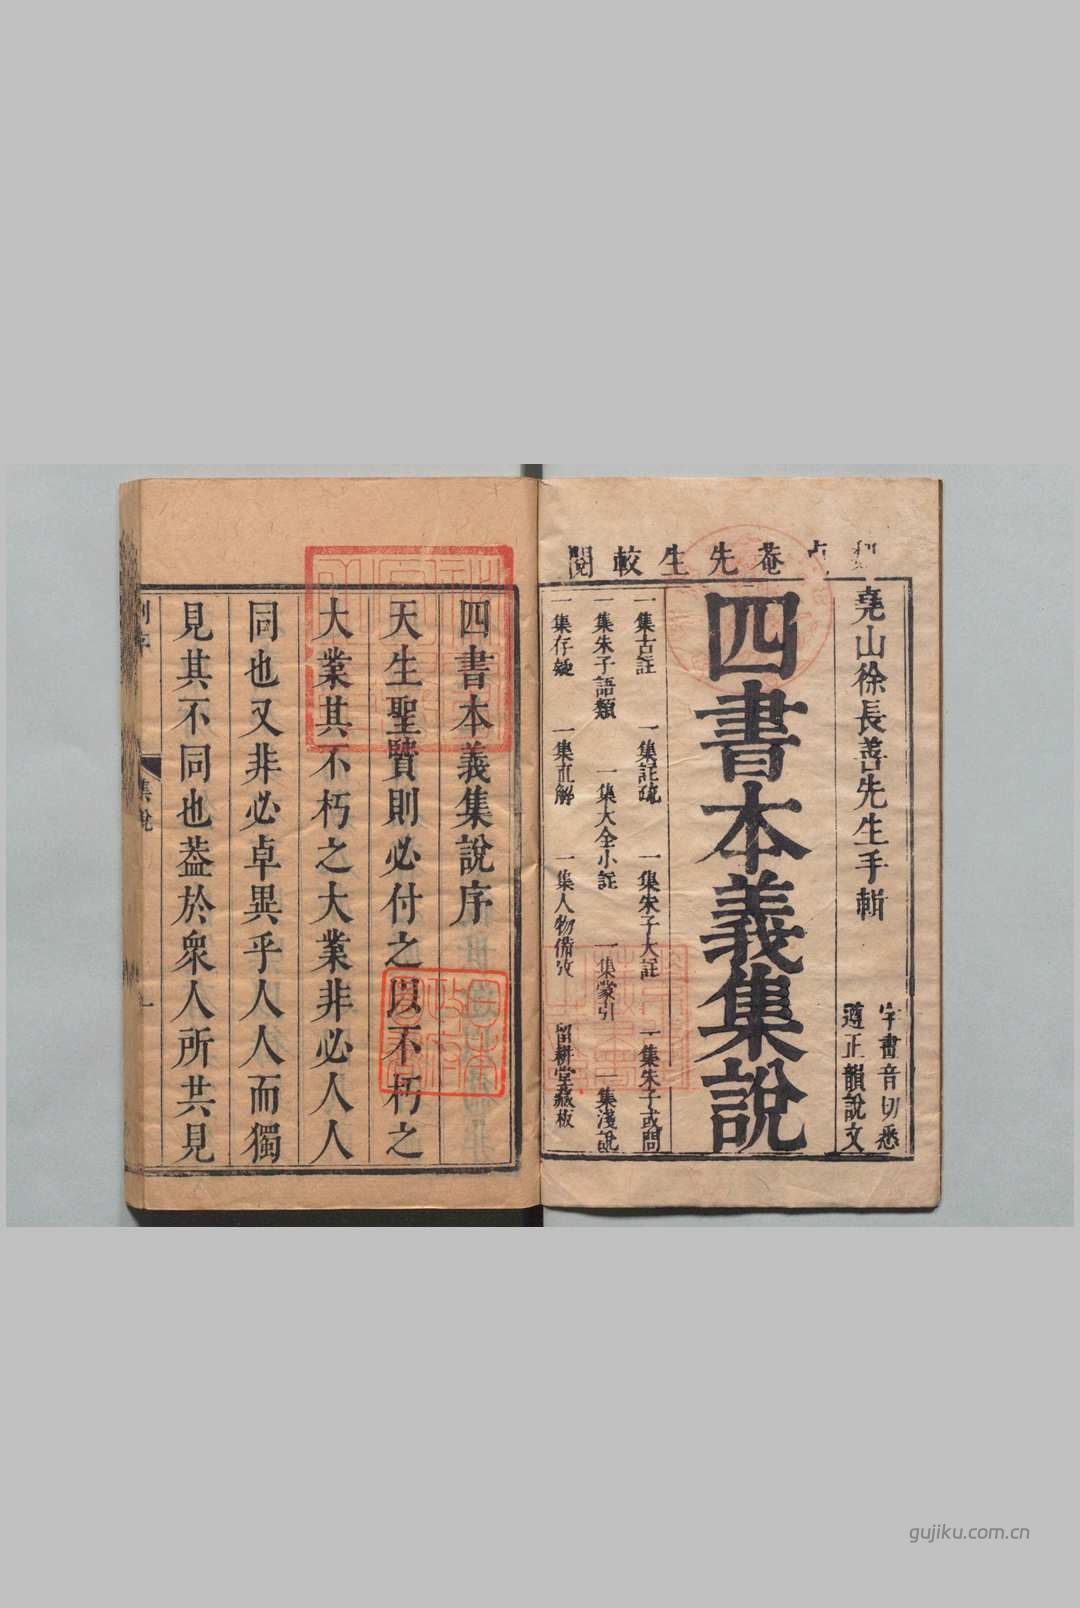 菴先生較閱
堯山徐長善先生手輯
字畫音切悉
遵正韻說文
四書本義集說
一集古註 一集註疏 一集朱子大註 一集朱子或問
一集朱子語類 一集大全小註 一集蒙引 一集淺說
一集存疑 一集直解 一集人物備攷 留耕堂藏板
四書本義集說序
天生聖賢則必付之以不朽之
大業其不朽之大業非必人人
同也又非必卓異乎人人而獨
見其不同也葢於衆人所共見
集說
一
gujiku.com.cn